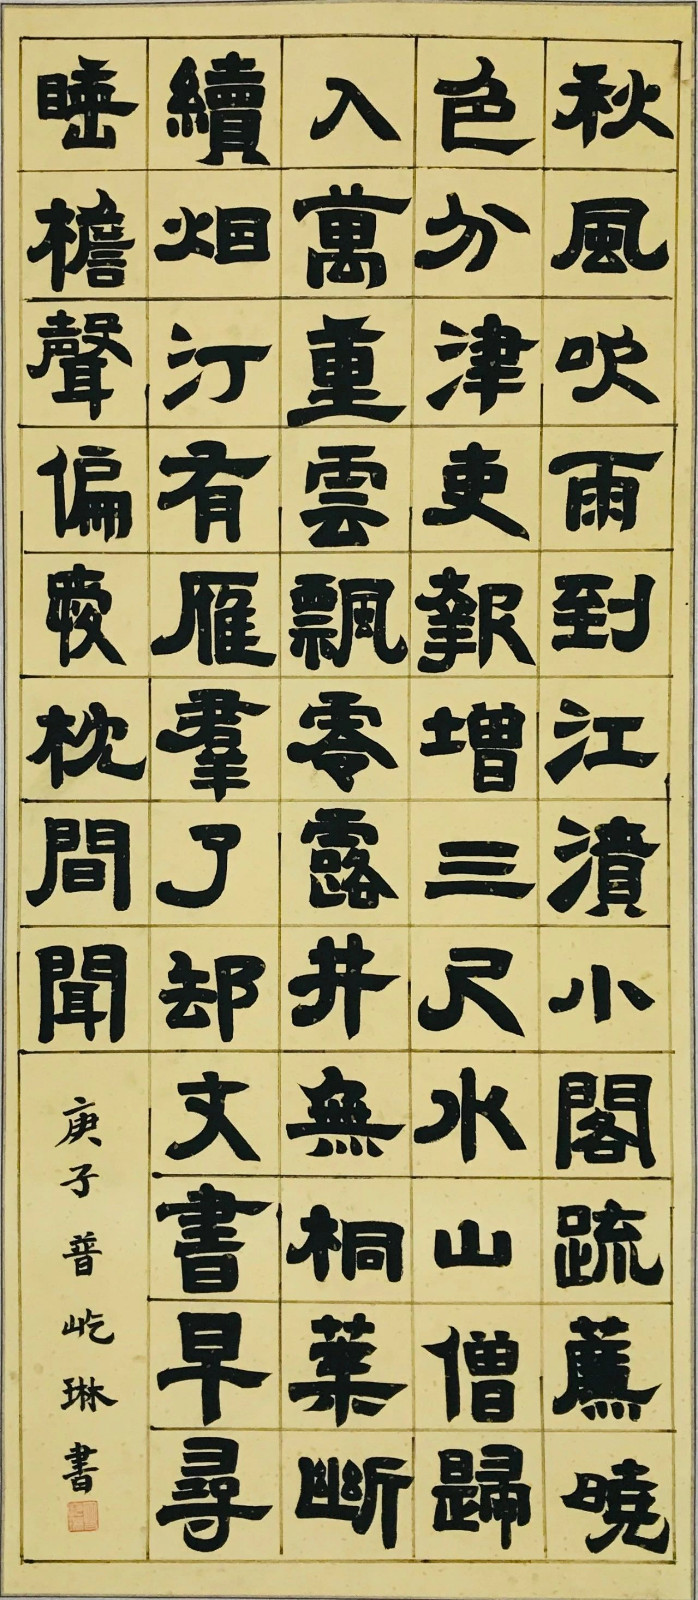 秋風吹雨到江濆小閣疏蕉曉
色分津吏報增三尺水山僧歸
入萬重雲飄零露井無桐葉斷
續烟汀有雁羣了却文書早尋
睡檐聲偏愛枕間聞
庚子普屹琳書